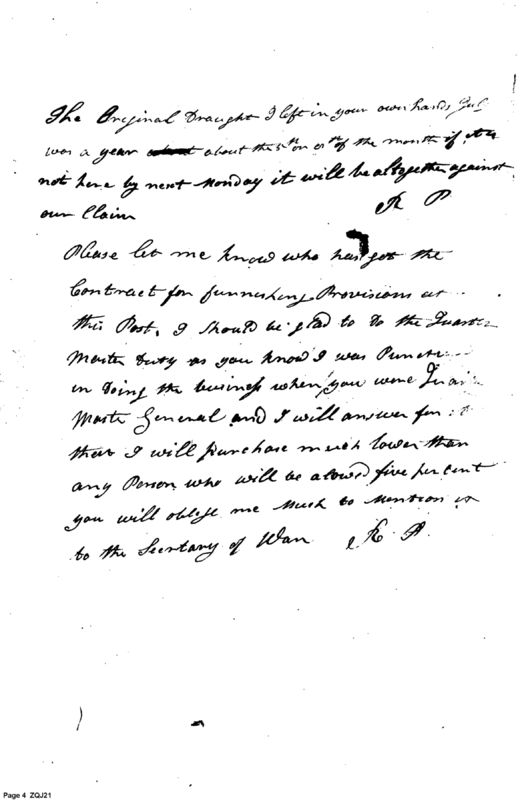 The Original Draught I left in your own hands July
was a year about the 5th or 6th of the month if it is
not here by next Monday it will be altogether against
our Claim
R P
Please let me know who has got the
Contract for furnishing Provisions at
this Post, I should be glad to do the Quarter
Master duty as you know I was Punct
in doing the business when you were Quar
Master General and I will answer for it
that I will purchase much lower than
any Person who will be alowd five per cent
you will oblige me Much to Mention it
to the Secretary of War R. P.
Page 4 ZQJ21